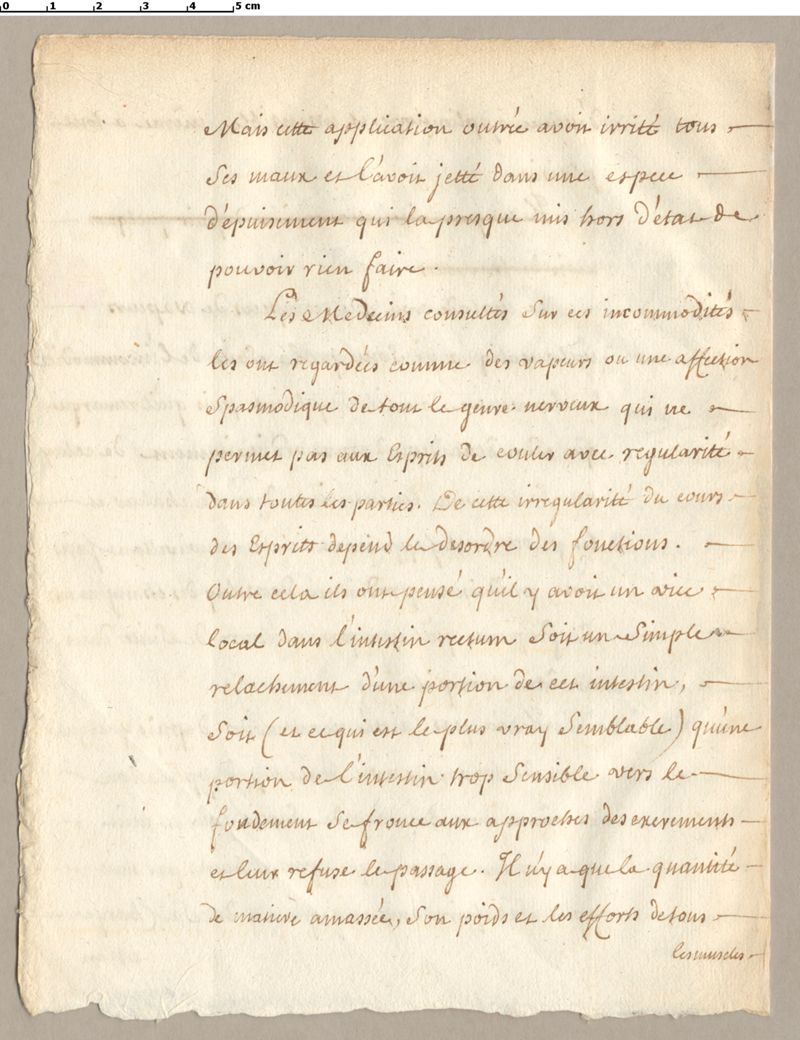 0 1 2 3 4 5 cm
Mais cette application outrée avoit irrité tous
Ses maux et l'avoit jetté dans une espece
d'epuisement qui la presque mis hors d'état de
pouvoir rien faire.
Les Medecins consultés Sur ces incommodités
les ont regardées comme des vapeurs ou une affection
Spasmodique de tout le genre nerveux qui ne
permet pas aux Esprits de couler avec regularité
dans toutes les parties. De cette irregularité du cours
des Esprits depend le desordre des fonctions.
Outre cela ils ont pensé qu'il y avoit un vice
local dans l'intestin rectum Soit un Simple
relachement d'une portion de cet intestin,
Soit (et ce qui est le plus vray Semblable) qu'une
portion de l'intestin trop Sensible vers le
fondement Se fronce aux approches des excrements
et leur refuse le passage. Il n'y a que la quantité
de matiere amassée, Son poids et les efforts de tous
les muscles